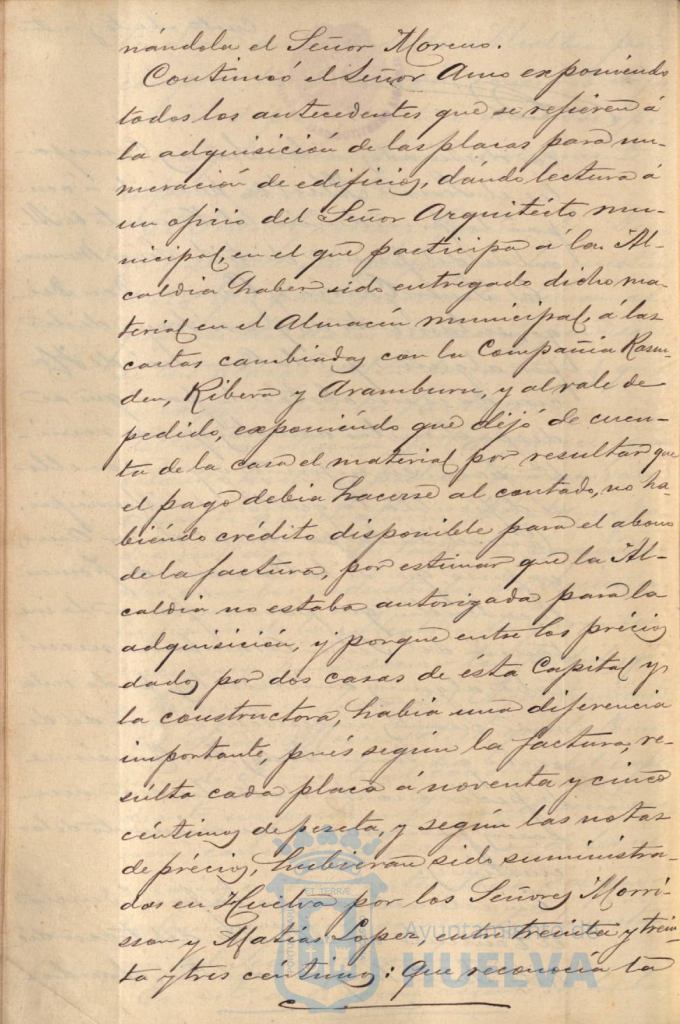 nándola el Señor Moreno.
Continuó el Señor Amo exponiendo
todos los antecedentes que se refieren á
la adquisición de las placas para nu-
meración de edificios, dándo lectura á
un oficio del Señor Arquitécto mu-
nicipal, en el que participa á la Al-
caldia haber sido entregado dicho ma-
terial en el Almacén municipal, á las
cartas cambiadas con la Compañia
den, Ribera y Aramburu, y al vale de
pedido, exponiéndo que dejó de cuen-
ta de la casa el material por resultar que
el pago debia hacerse al contado, no ha-
biéndo crédito disponible para el abono
de la factura, por estimar que la Al-
caldia no estaba autorizada para la
adquisición, y porque entre los précios
dados por dos casas de ésta Capital y
la constructora, habia una diferencia
importante, pués según la factura, re-
súlta cada placa á noventa y cinco
céntimos de peseta, y según las notas
de précios, hubieran sido suministra-
das en Huelva por los Señores Morri-
sson y Matías Lopez, entre treinta y trein-
ta y tres céntimos: Que reconocía la
Ayuntamiento de
HUELVA